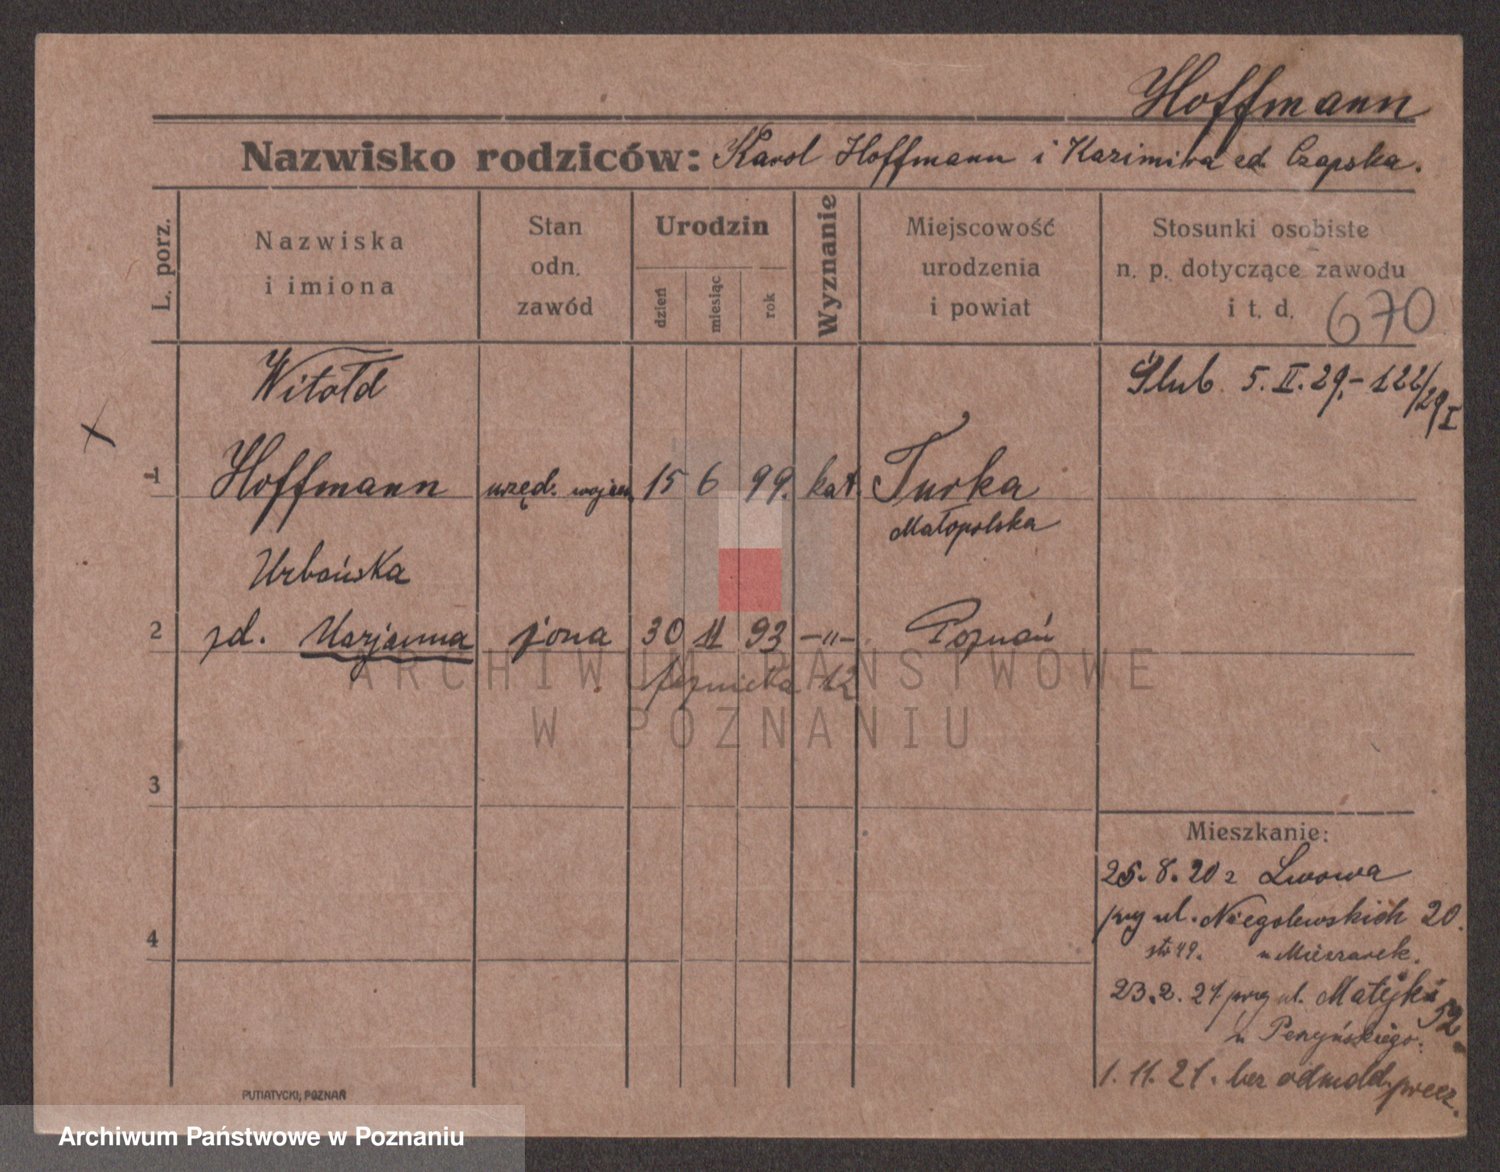 Hoffmann
Nazwisko rodziców: Karol Hoffmann i Kazimira zd. Czapska.
L. porz.
Nazwiska i imiona
Stan odn. zawód
Urodzin
dzień
miesiąc
rok
Wyznanie
Miejscowość urodzenia i powiat
Stosunki osobiste n. p. dotyczące zawodu i t. d.
670
Witold
Ślub 5. II. 29,- 122/29 I
1 Hoffmann urzęd. 15 6 99. kat. Turka
Małopolska
Urbańska
2 zd. Marjanna żona 30 11 93 -"- Poznań
12
3
4
Mieszkanie:
25. 8. 20 z Lwowa
przy ul. Niegolewskich 20.
str 49. u Mieszarek.
23. 2. 21 przy ul. Matejki 52.
u Peszyńskiego.
1. 11. 21. bez odmeld. precz.
PUTIATYCKI, POZNAŃ
ARCHIWUM PAŃSTWOWE
W POZNANIU
Archiwum Państwowe w Poznaniu